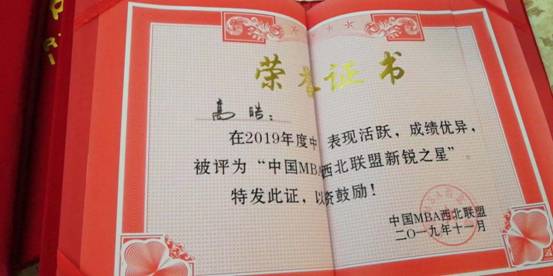 荣誉证书
高皓：
在2019年度中 表现活跃，成绩优异，
被评为“中国MBA西北联盟新锐之星”
特发此证，以资鼓励！
中国MBA西北联盟
二〇一九年十一月